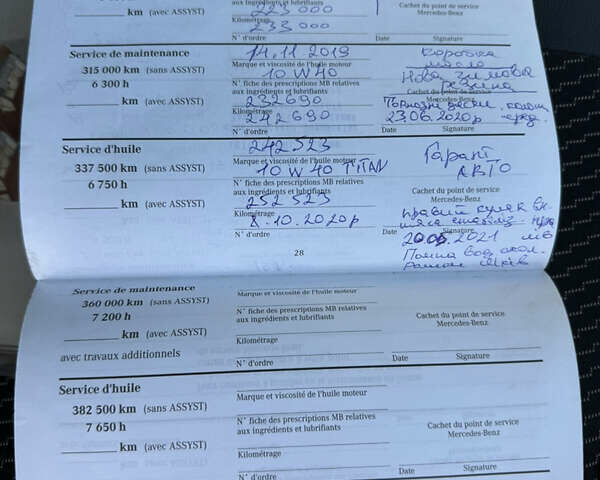 aux ingrédients et lubrifiants
223 000
______ km (avec ASSYST)
Kilométrage
233 000
N° d'ordre
Cachet du point de service
Mercedes-Benz
Date Signature
Service de maintenance
14.11.2019
Marque et viscosité de l'huile moteur
315 000 km (sans ASSYST)
10 W 40
6 300 h
N° fiche des prescriptions MB relatives
aux ingrédients et lubrifiants
232690
______ km (avec ASSYST)
Kilométrage
242 690
N° d'ordre
коробка
масло
Нова зимова
резина
Cachet du point de service
Mercedes-Benz
23.06.2020р
Date Signature
Service d'huile
242 523
Marque et viscosité de l'huile moteur
337 500 km (sans ASSYST)
10 W 40 TITAN
6 750 h
N° fiche des prescriptions MB relatives
aux ingrédients et lubrifiants
252 523
______ km (avec ASSYST)
Kilométrage
10.2020р
N° d'ordre
Гарант
АВТО
Cachet du point de service
Mercedes-Benz
правий
Date Signature
2021
28
Service de maintenance
360 000 km (sans ASSYST)
Marque et viscosité de l'huile moteur
7 200 h
N° fiche des prescriptions MB relatives
aux ingrédients et lubrifiants
______ km (avec ASSYST)
Kilométrage
avec travaux additionnels
N° d'ordre
Cachet du point de service
Mercedes-Benz
Date Signature
Service d'huile
Marque et viscosité de l'huile moteur
382 500 km (sans ASSYST)
7 650 h
N° fiche des prescriptions MB relatives
aux ingrédients et lubrifiants
______ km (avec ASSYST)
Kilométrage
N° d'ordre
Cachet du point de service
Mercedes-Benz
Date Signature